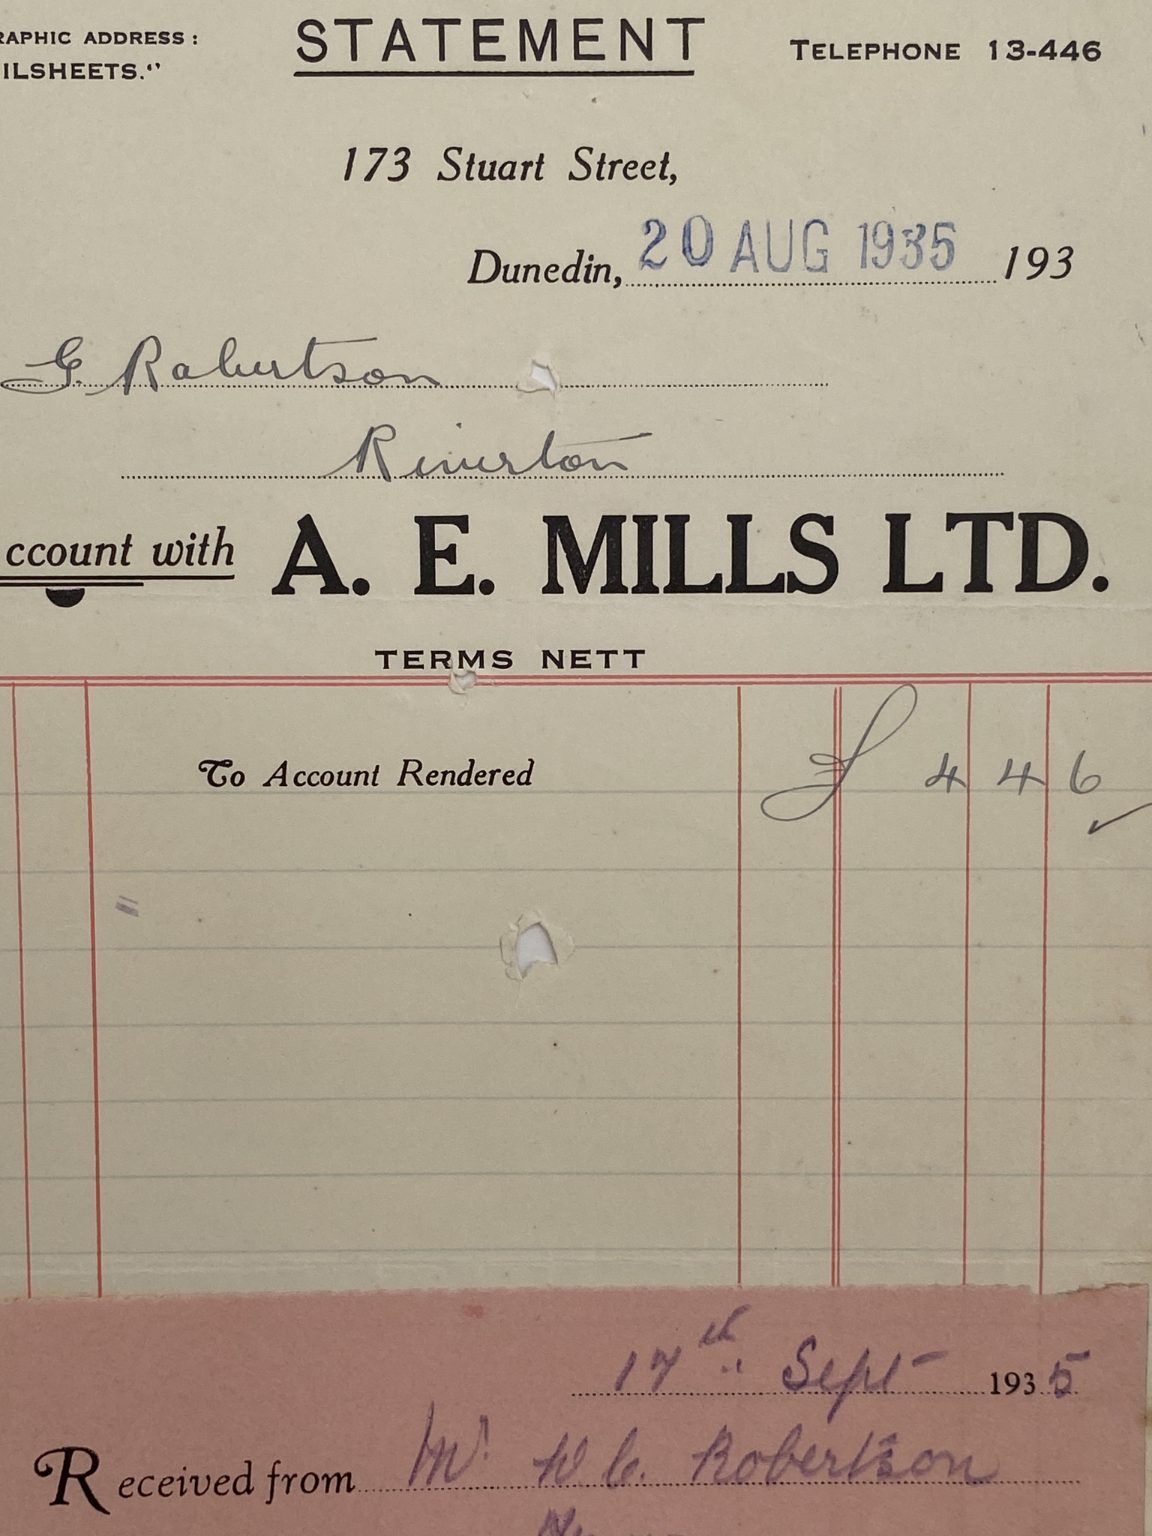 RAPHIC ADDRESS:
ILSHEETS."
STATEMENT
TELEPHONE 13-446
173 Stuart Street,
Dunedin, 20 AUG 1935 193
G. Robertson
Riverton
ccount with A. E. MILLS LTD.
TERMS NETT
To Account Rendered £ 4 4 6
17th Sept 1935
Received from Mr W G. Robertson